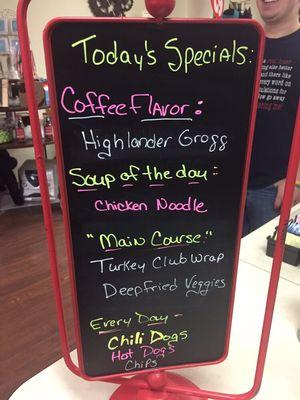 Today's Specials:
Coffee Flavor:
Highlander Grogg
Soup of the day:
Chicken Noodle
"Main Course:"
Turkey Club Wrap
Deepfried Veggies
Every Day -
Chili Dogs
Hot Dogs
Chips